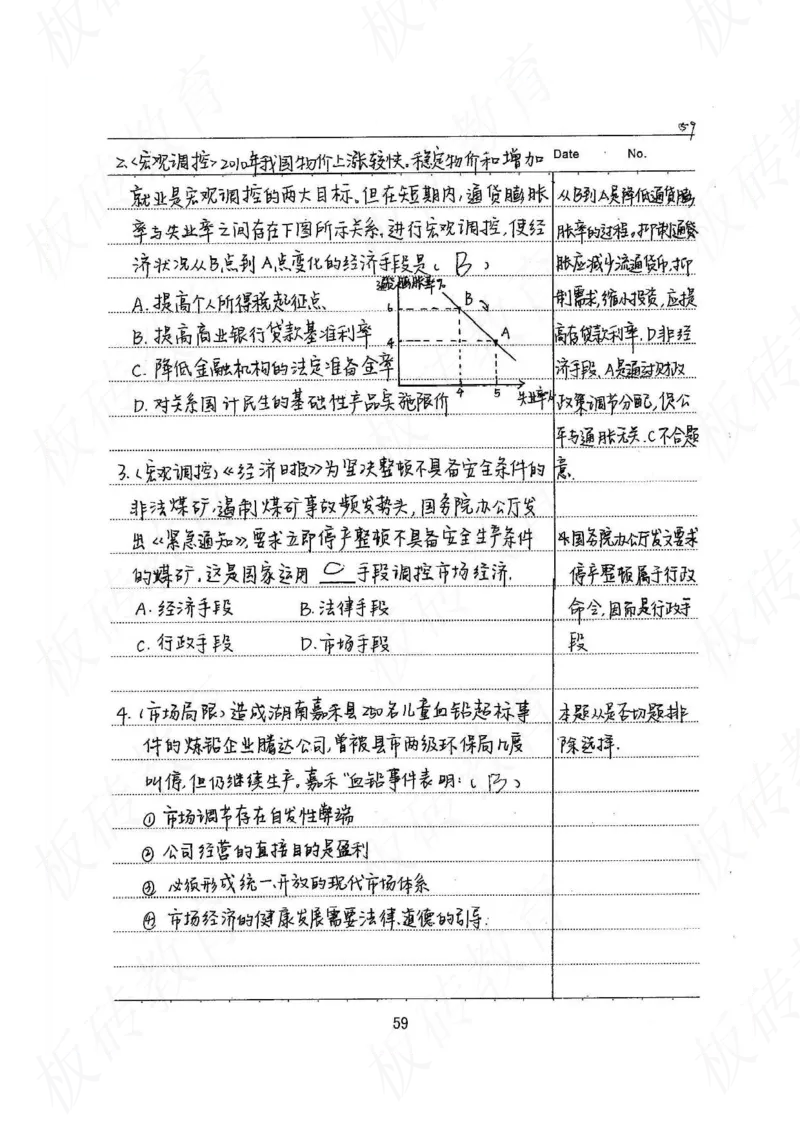 059
2.<宏观调控>2010年我国物价上涨较快。稳定物价和增加
Date No.
就业是宏观调控的两大目标。但在短期内,通货膨胀
率与失业率之间存在下图所示关系,进行宏观调控,使经
济状况从B点到A点变化的经济手段是( B )
A. 提高个人所得税起征点、
B. 提高商业银行贷款基准利率
C. 降低金融机构的法定准备金率
D. 对关系国计民生的基础性产品实施限价
通货膨胀率%
6
4
B
A
4 5 失业率%
从B到A是降低通货膨
胀率的过程。抑制通货
胀应减少流通货币,抑
制需求,缩小投资,应提
高存贷款利率.D非经
济手段、A是通过财政
政策调节分配,促公
平与通胀无关.C不合题
意.
3.(宏观调控)《经济日报》为坚决整顿不具备安全条件的
非法煤矿,遏制煤矿事故频发势头,国务院办公厅发
出《紧急通知》,要求立即停产整顿不具备安全生产条件
的煤矿,这是国家运用 C 手段调控市场经济.
A. 经济手段 B. 法律手段
C. 行政手段 D. 市场手段
国务院办公厅发文要求
停产整顿属于行政
命令,因而是行政手
段
4.(市场局限)造成湖南嘉禾县250名儿童血铅超标事
件的炼铅企业腾达公司,曾被县市两级环保局几度
叫停,但仍继续生产。嘉禾"血铅事件表明:( B )
① 市场调节存在自发性弊端
② 公司经营的直接目的是盈利
③ 必须形成统一、开放的现代市场体系
④ 市场经济的健康发展需要法律、道德的引导.
本题从是否切题排
除选择.
59
板砖教育